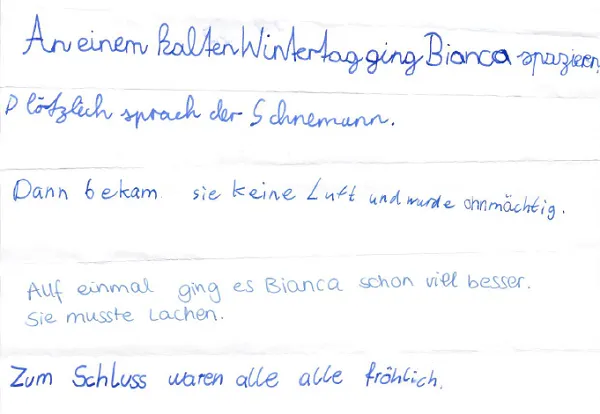 An einem kalten Wintertag ging Bianca spazieren
Plötzlich sprach der Schnemann.
Dann bekam sie keine Luft und wurde ohnmächtig.
Auf einmal ging es Bianca schon viell besser.
Sie musste Lachen.
Zum Schluss waren alle alle fröhlich.